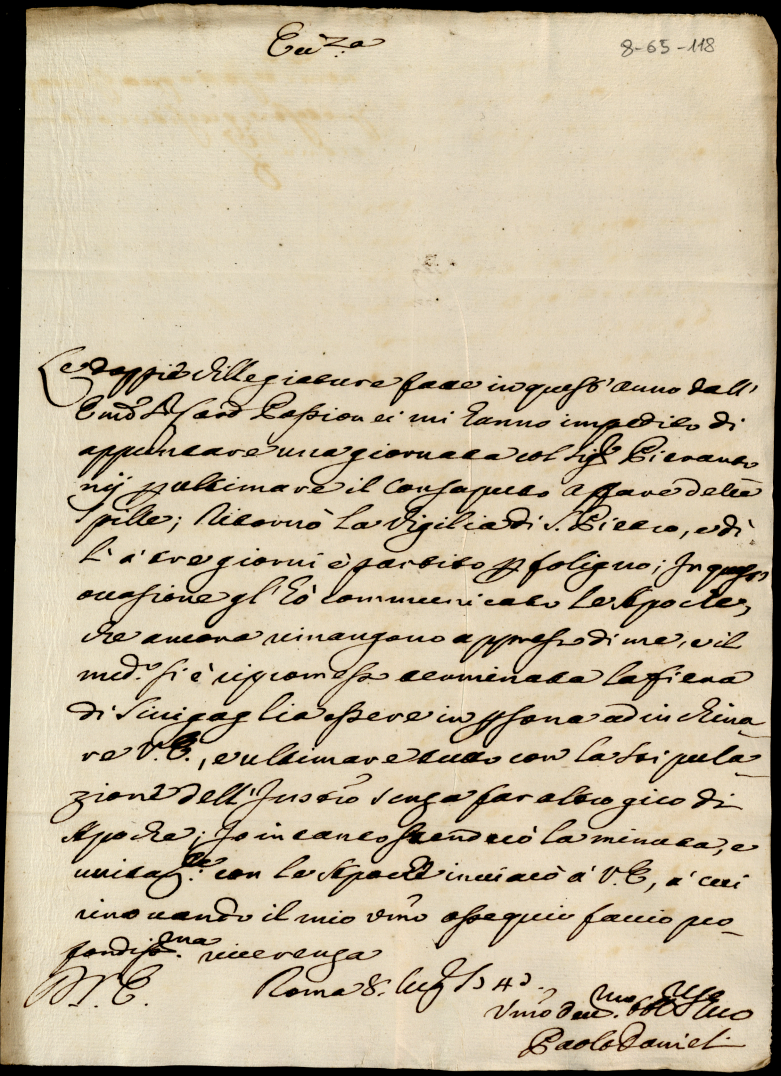 Ecc.za
8-65-118
Le doppie Villegiature fatte in quest'anno dall'
Emo Sig. Card Passionei mi hanno impedito di
appuntare una giornata col Sig.r Pieranto
nij p ultimare il consaputo affare delle
Spille; Ritornò la Vigilia di S. Pietro, e di
lì à tre giorni è partito p foligno; In questa
occasione gl'hò communicato le Apoche,
che ancora rimangono appresso di me, e il
med.o si è ripromesso terminata la fiera
di Sinigaglia essere in psona ad inchina-
re V. E., e ultimare tutto con la stipula-
zione dell'Instro senza far altro giro di
Apoche; Io in tanto stenderò la minuta, e
unitam.te con le Apoche invierò à V. E., à cui
rinovando il mio umo ossequio faccio pro-
fondiss.ma riverenza
D. V. E. Roma 8. lug
Umo dev.mo obblmo
Paolo Danieli